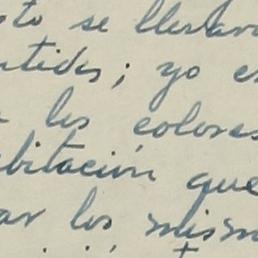 sto se llevar
ntides; yo es
los colores
bitación que
ar los mism